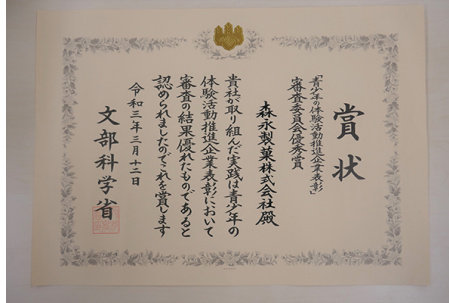 賞状
「青少年の体験活動推進企業表彰」
審査委員会優秀賞
森永製菓株式会社殿
貴社が取り組んだ実践は青少年の
体験活動推進企業表彰において
審査の結果優れたものであると
認められましたのでこれを賞します
令和三年三月十二日
文部科学省